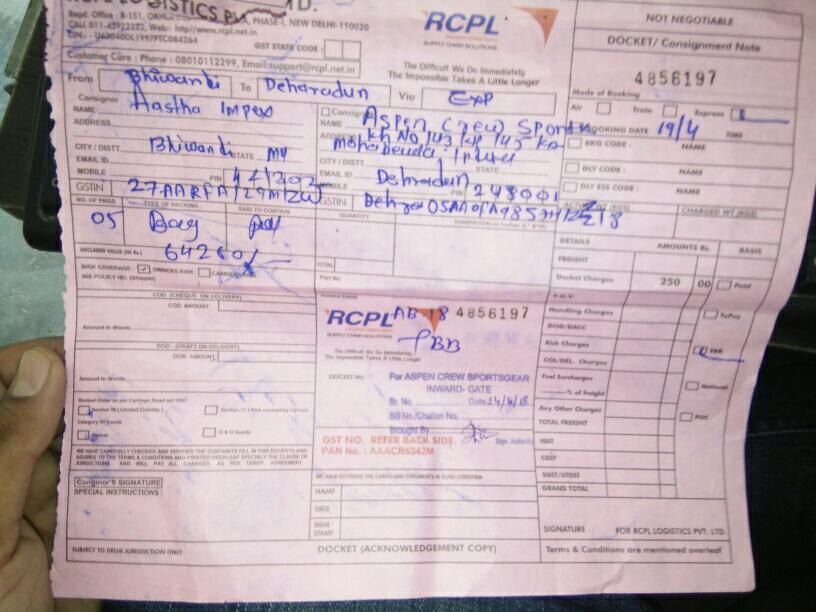 LOGISTICS PVT. LTD.
Regd. Office : B-151, OKHLA PHASE-I, NEW DELHI-110020
CALL 011-45922222, Web:- http//www.rcpl.net.in
CIN. : U63040DL1997PTC084264
GST STATE CODE :
Customer Care : Phone : 08010112299, Email:support@rcpl.net.in
RCPL
SUPPLY CHAIN SOLUTIONS
The Difficult We Do Immediately
The Impossible Takes A Little Longer
NOT NEGOTIABLE
DOCKET/ Consignment Note
4856197
Mode of Booking
Air Train Express
BOOKING DATE 19/4 TIME
From Bhiwandi To Dehradun Via EXP
Consignor Aastha Impex
NAME
ADDRESS
CITY / DISTT. Bhiwandi STATE MH
EMAIL ID
MOBILE PIN
GSTIN
Consignee
NAME Aspen Crew Sports
ADDRESS Kh No
CITY / DISTT. STATE
EMAIL ID Dehradun
MOBILE PIN 248001
GSTIN
BKG CODE : NAME
DLY CODE : NAME
DLY ESS CODE : NAME
ACTUAL WT (KGS) CHARGED WT (KGS)
NO. OF PKGS TYPE OF PACKING SAID TO CONTAIN QUANTITY DIMENSION in Inches (L*B*H)
05 Bag
DECLARED VALUE (IN Rs.) 64260/
RISK COVERAGE : OWNERS RISK CARRIER RISK
INS POLICY NO. (Shipper)
TOTAL
Part No.
DETAILS AMOUNTS Rs. BASIS
FREIGHT
Docket Charges 250 00 Paid
F.O.V.
Handling Charges ToPay
DOB/DACC
Risk Charges TBB
COL/DEL. Charges
Fuel Surcharges National
% of freight
Any Other Charges FOC
TOTAL FREIGHT
IGST
CGST
SGST/UTGST
GRAND TOTAL
COD (CHEQUE ON DELIVERY)
COD AMOUNT
Amount in Words
DOD (DRAFT ON DELIVERY)
DOD AMOUNT
Amount in Words
RCPL
SUPPLY CHAIN SOLUTIONS
The Difficult We Do Immediately
The Impossible Takes A Little Longer
AB 18 4856197
TBB
DOCKET NO.
For ASPEN CREW SPORTSGEAR
INWARD- GATE
Sr. No. Date 24/4/18
Bill No./Challan No.
Brought By
Sign. Authority
GST NO. REFER BACK SIDE.
PAN No. : AAACR6342M
Booked Under as per Carriage Road act 2007
Section 10 ( Limited Liability )
Section 11 ( Risk covered by Carrier)
Category Of Goods
General
D & H Goods
WE HAVE CAREFULLY CHECKED AND VERIFIED THE CONTAINTS FILL IN THIS DOCKETS AND
AGREE TO THE TERMS & CONDITIONS AND PRINTED OVERLEAF SPECIALLY THE CLAUSE OF
JURISDICTIONS AND WILL PAY ALL CHARGES AS PER TARIFF AGREEMENT.
Conginor'S SIGNATURE
SPECIAL INSTRUCTIONS :
WE HAVE RECEIVED THE CARGO AND DOCUMENTS IN GOOD CONDITION
NAME
DATE
SIGN /
STAMP
SIGNATURE FOR RCPL LOGISTICS PVT. LTD.
SUBJECT TO DELHI JURISDICTION ONLY
DOCKET (ACKNOWLEDGEMENT COPY)
Terms & Conditions are mentioned overleaf